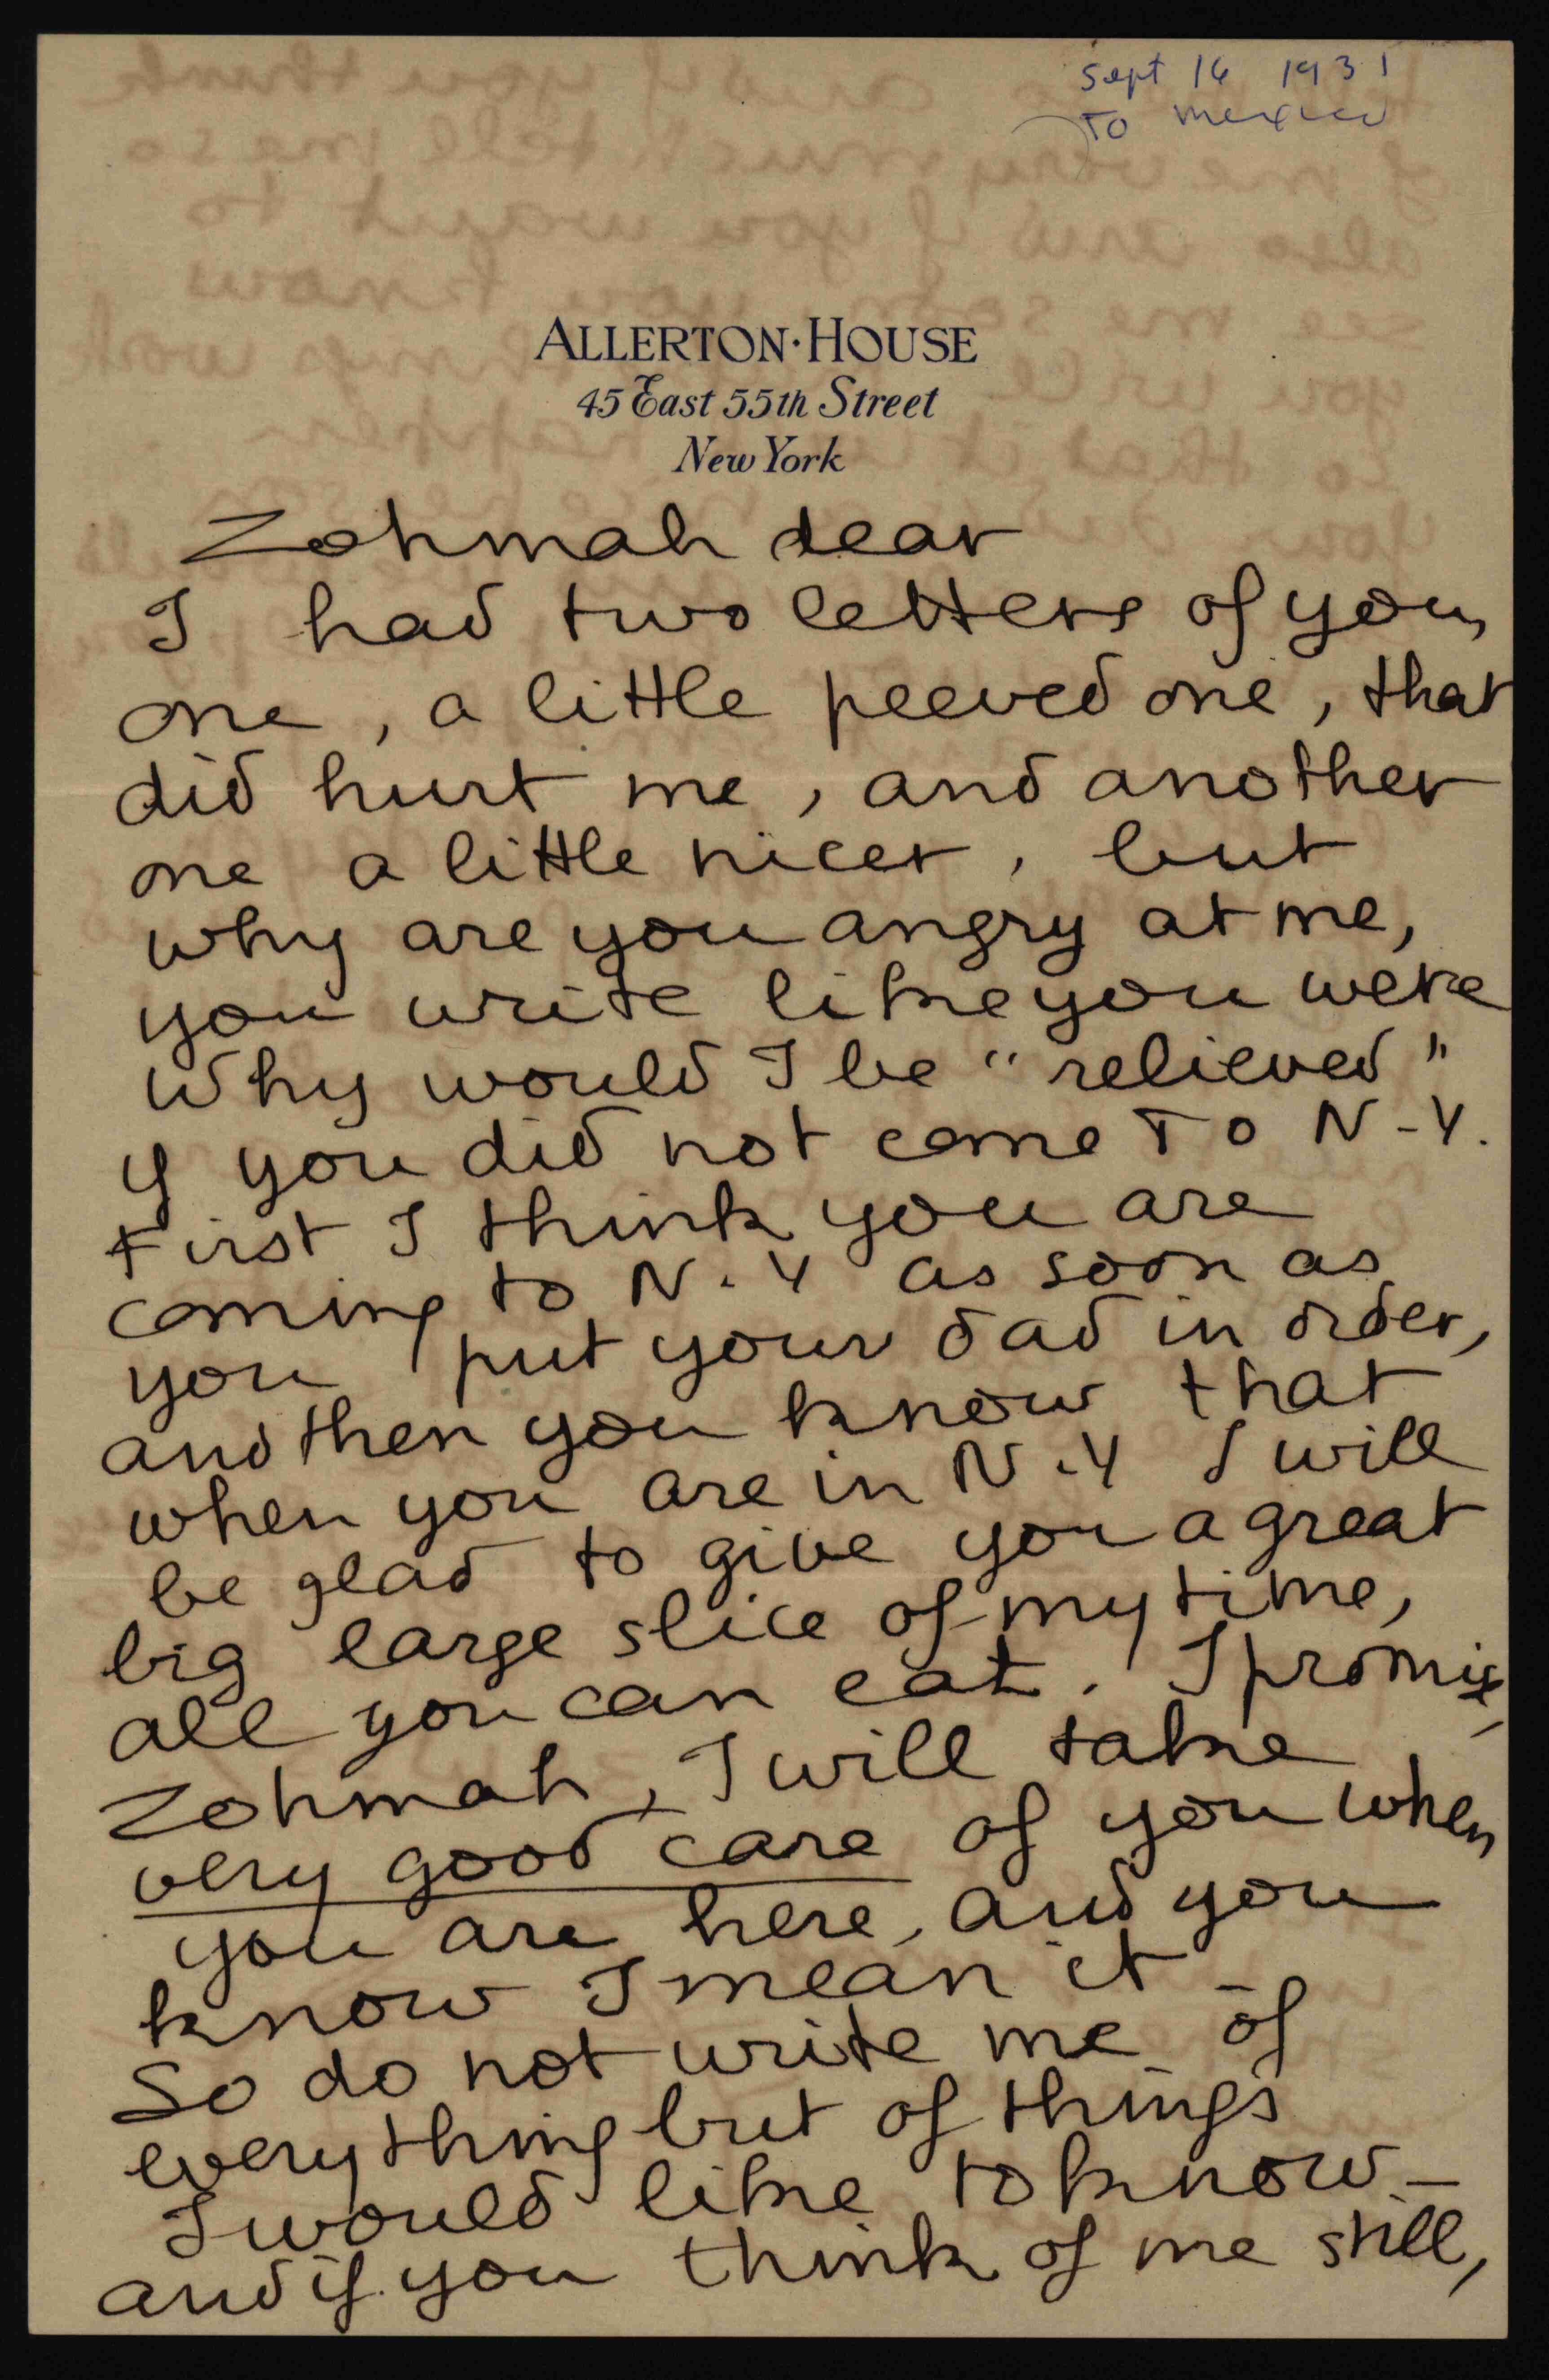 Sept 16 1931
To Mexico
ALLERTON·HOUSE
45 East 55th Street
New York
Zohmah dear
I had two letters of you,
one, a little peeved one, that
did hurt me, and another
one a little nicer, but
why are you angry at me,
you write like you were
Why would I be "relieved"
if you did not come To N-Y.
First I think you are
coming to N.Y as soon as
you put your dad in order,
and then you know that
when you are in N.Y I will
be glad to give you a great
big large slice of my time,
all you can eat. I promise,
Zohmah, I will take
very good care of you when
you are here, and you
know I mean it -
So do not write me of
everything but of things
I would like to know -
and if you think of me still,